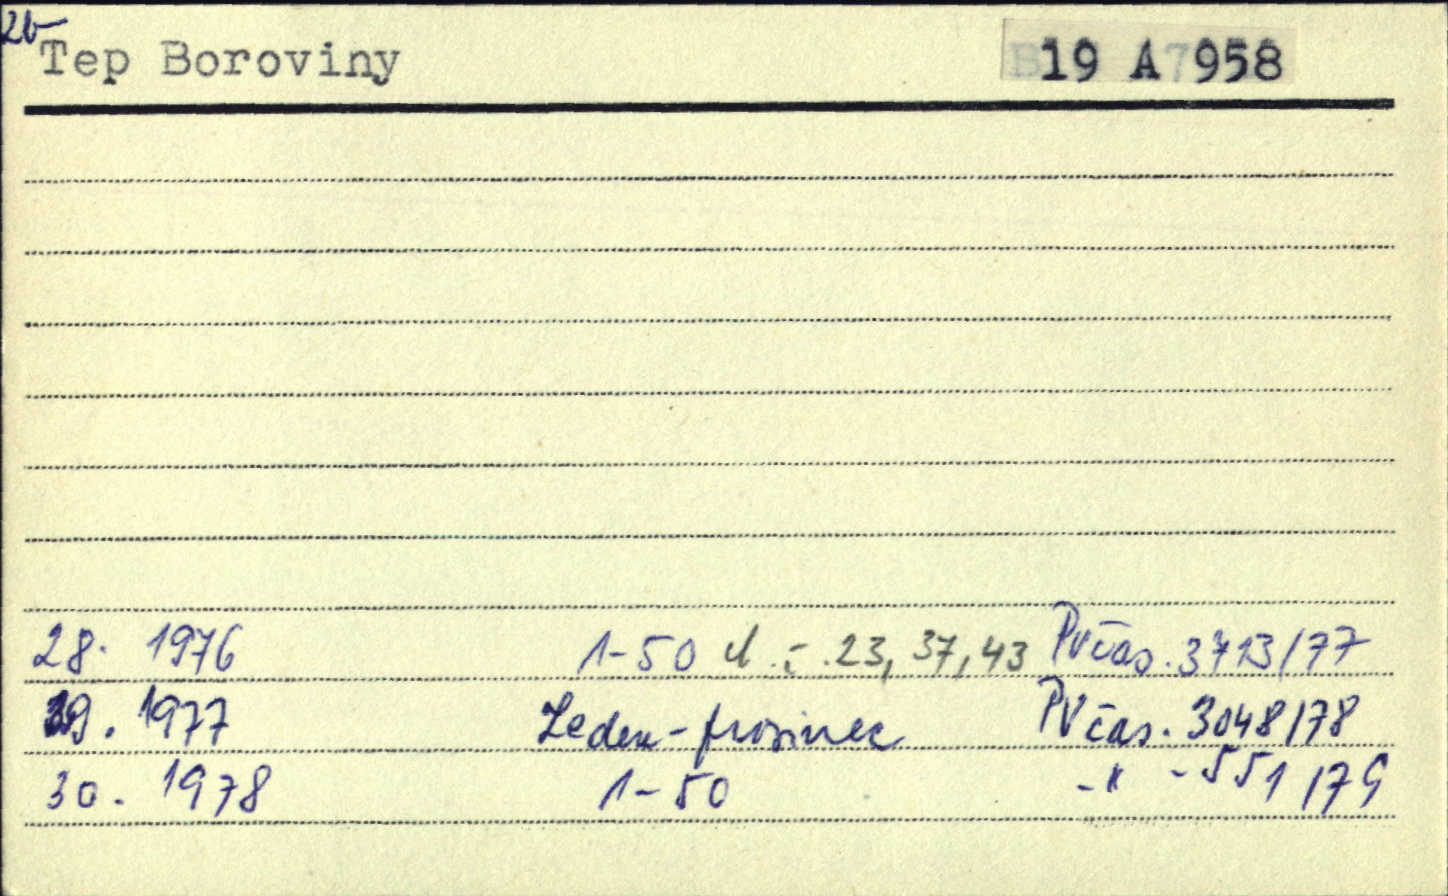 2b
Tep Boroviny 19 A 958
28. 1976 1-50 č. 23, 37, 43 PVčas. 3713/77
29. 1977 Leden-prosinec PVčas. 3048/78
30. 1978 1-50 -"- 551/79